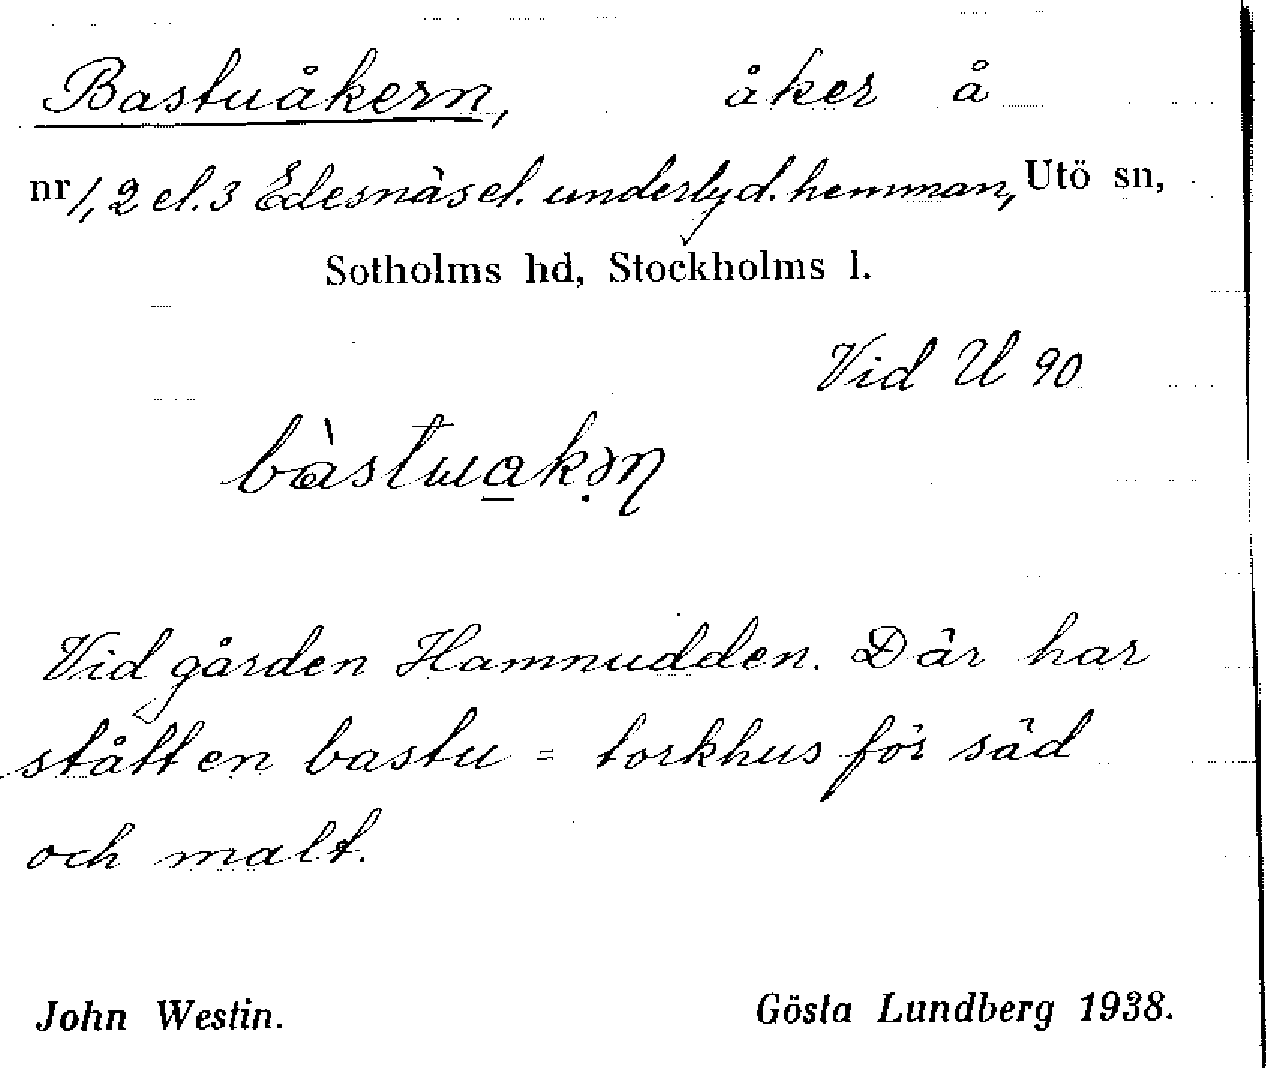 Bastuåkern, åker å
nr 1, 2 el. 3 Edesnäs el. underlyd. hemman, Utö sn,
Sotholms hd, Stockholms l.
Vid U 90
bàstua̲kə̣n
Vid gården Hamnudden. Där har
stått en bastu = torkhus för säd
och malt.
John Westin. Gösta Lundberg 1938.